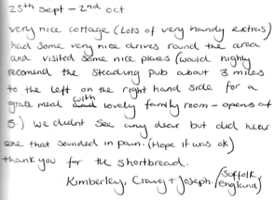 25th Sept - 2nd Oct
very nice cottage (Lots of very handy extras)
had some very nice drives round the area
and visited some nice places (would highly
recomend the Steading pub about 3 miles
to the left on the right hand side for a
grate meal with and lovely family room - opens at
5.) We didnt see any dear but did hear
one that sounded in pain. (Hope it was ok)
thank you for the shortbread.
Kimberley, Craig + Joseph. (Suffolk
England)